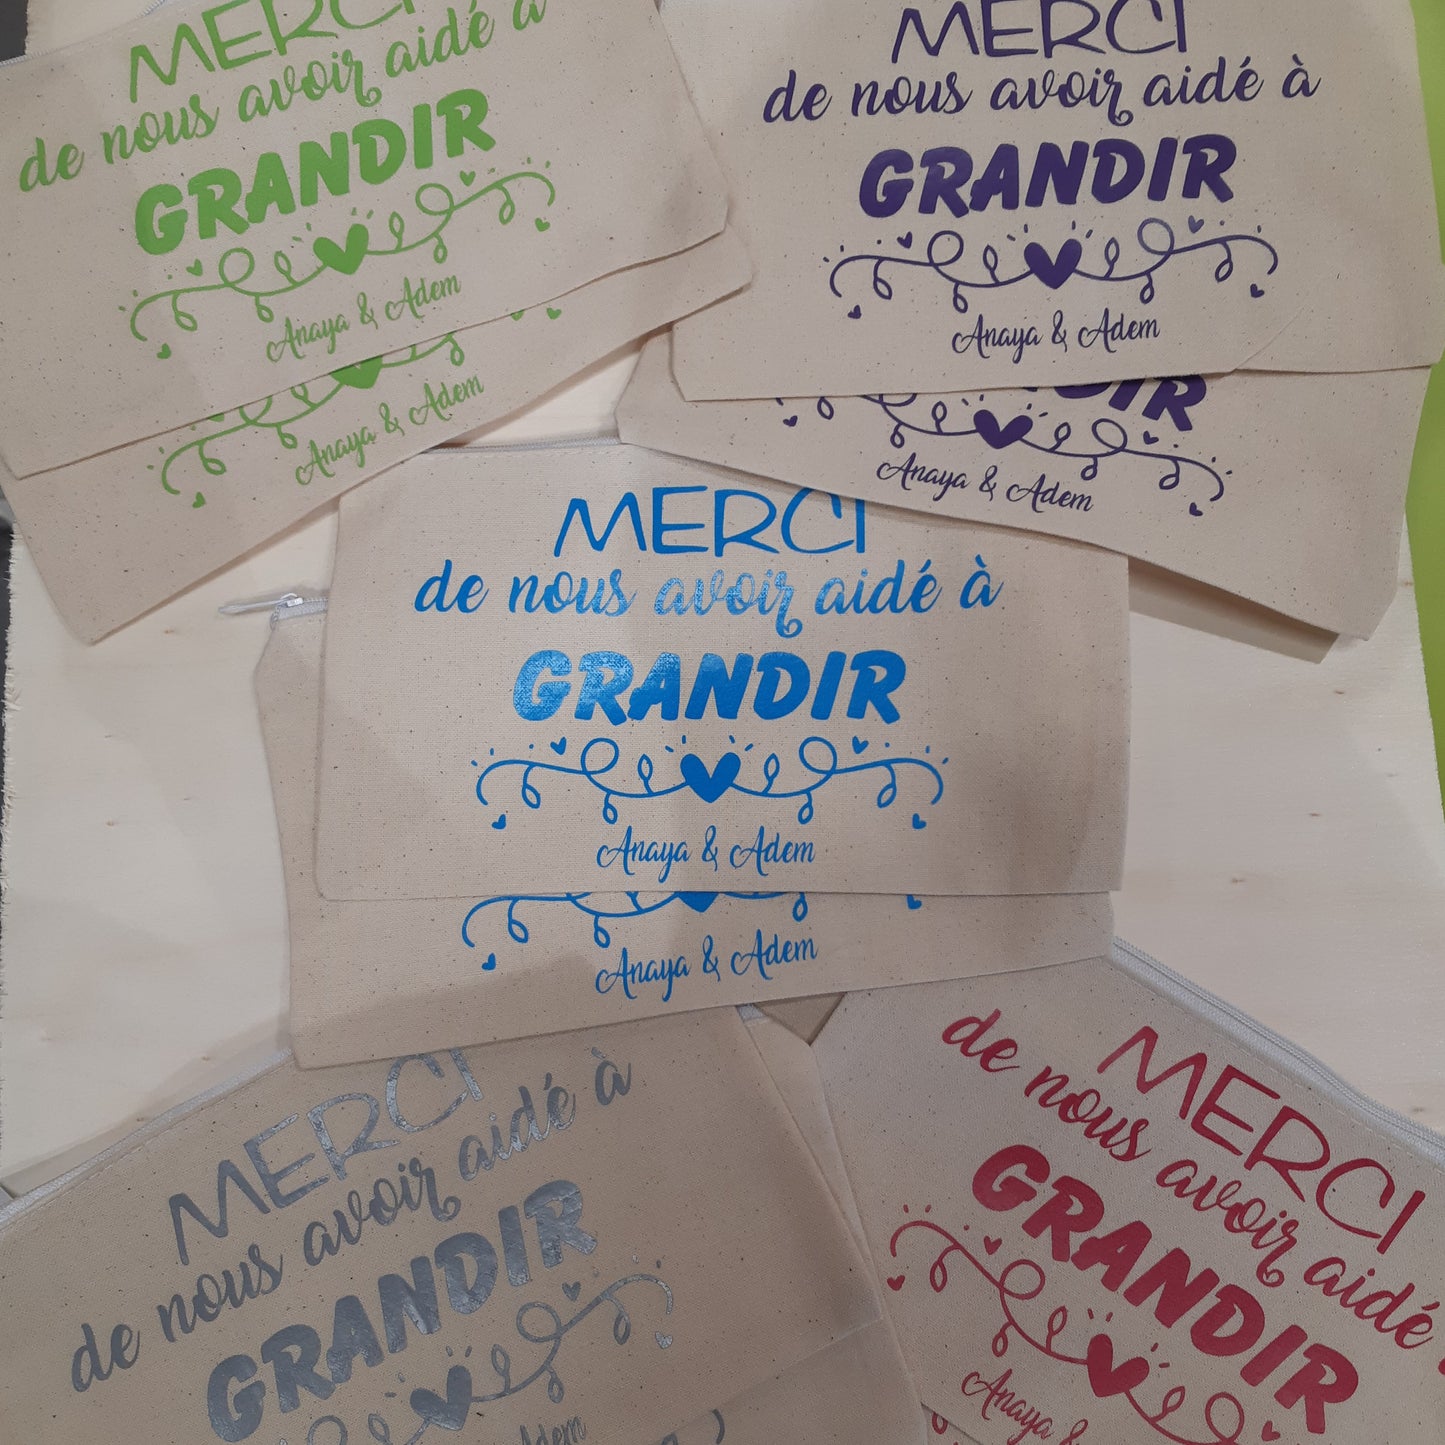 MERCI
de nous avoir aidé à
GRANDIR
Anaya & Adem
Anaya & Adem
MERCI
de nous avoir aidé à
GRANDIR
Anaya & Adem
Anaya & Adem
MERCI
de nous avoir aidé à
GRANDIR
Anaya & Adem
Anaya & Adem
MERCI
de nous avoir aidé à
GRANDIR
Adem
MERCI
de nous avoir aidé
GRANDIR
Anaya &